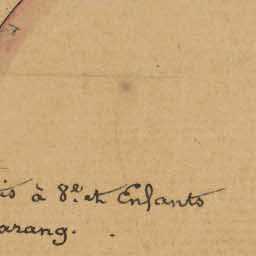 is à Vᵉ. et Enfants
arang.